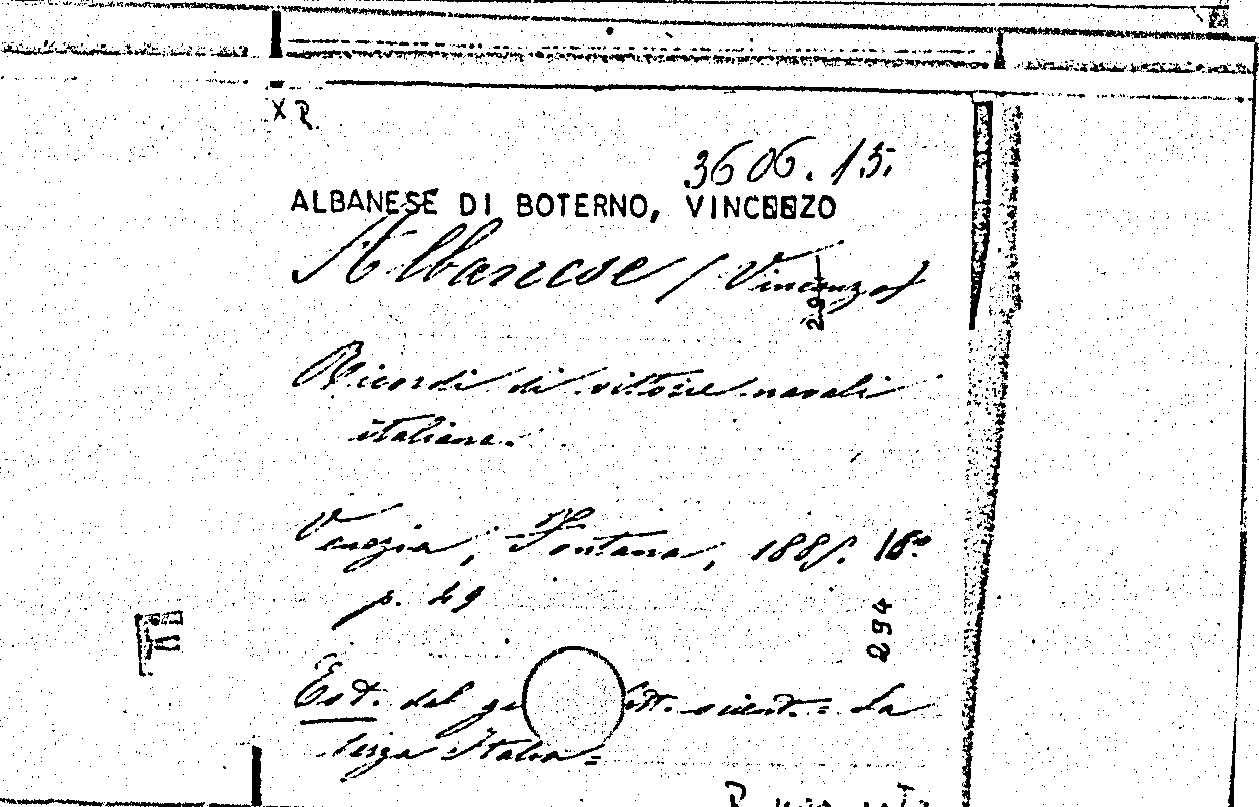 X R.
3606.15.
ALBANESE DI BOTERNO, VINCENZO
Albanese (Vincenzo)
294
Ricordi di vittorie navali
italiane.
Venezia, Fontana, 188 16°
p. 49
294
Est. dal gi tt. scient. = La
terza Italia =